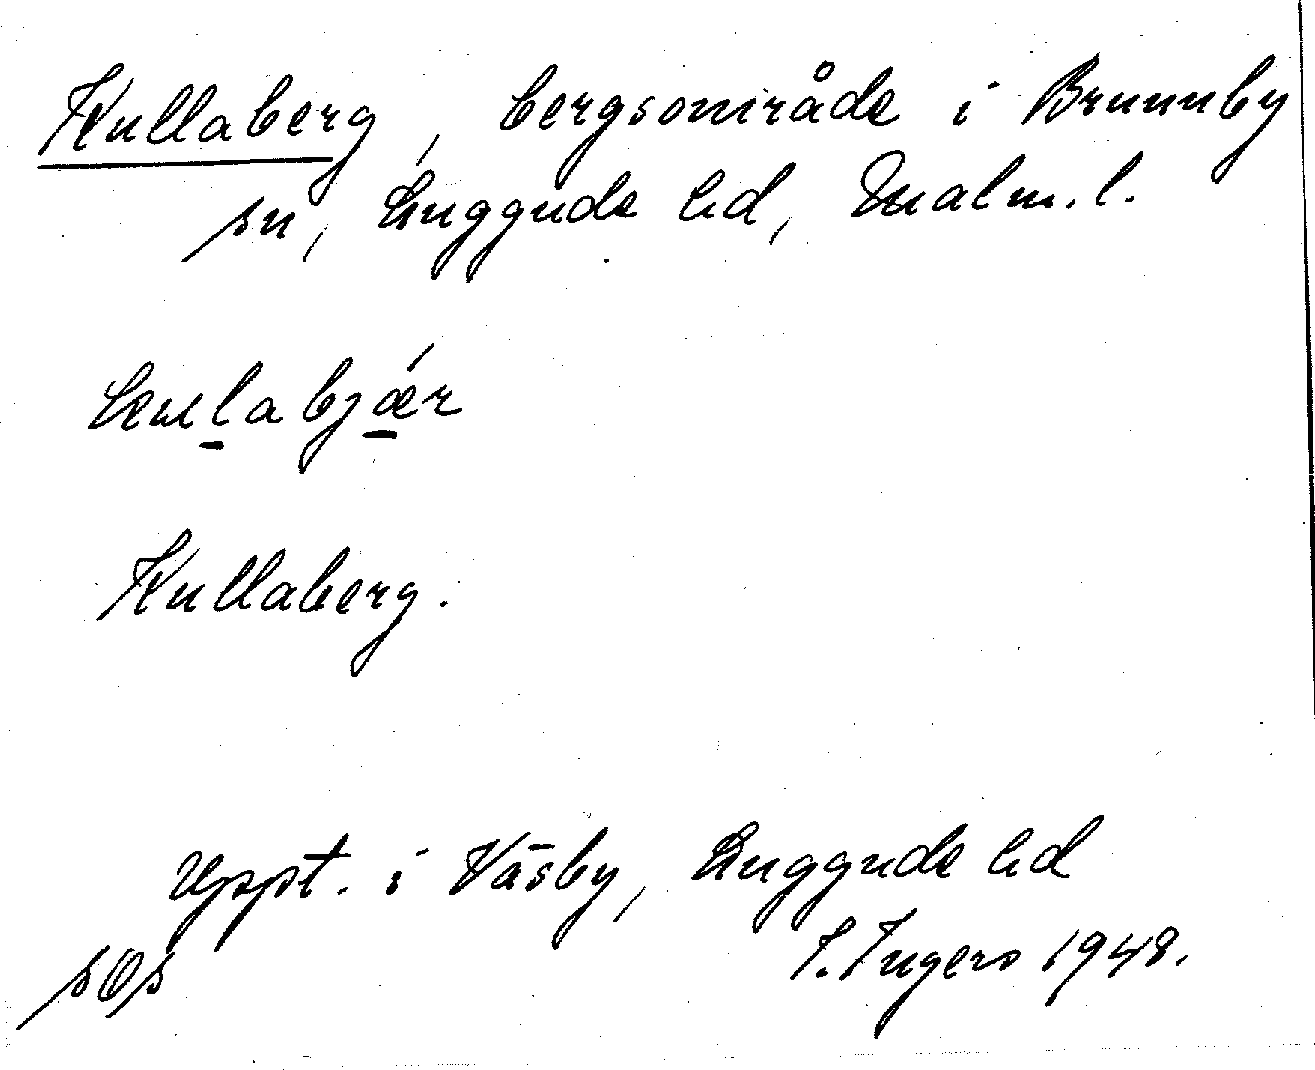 Kullaberg, bergsområde i Brunnby
sn, Luggude hd, Malm. l.
Kullaberg.
Uppt. i Väsby, Luggude hd
I. Ingers 1948.